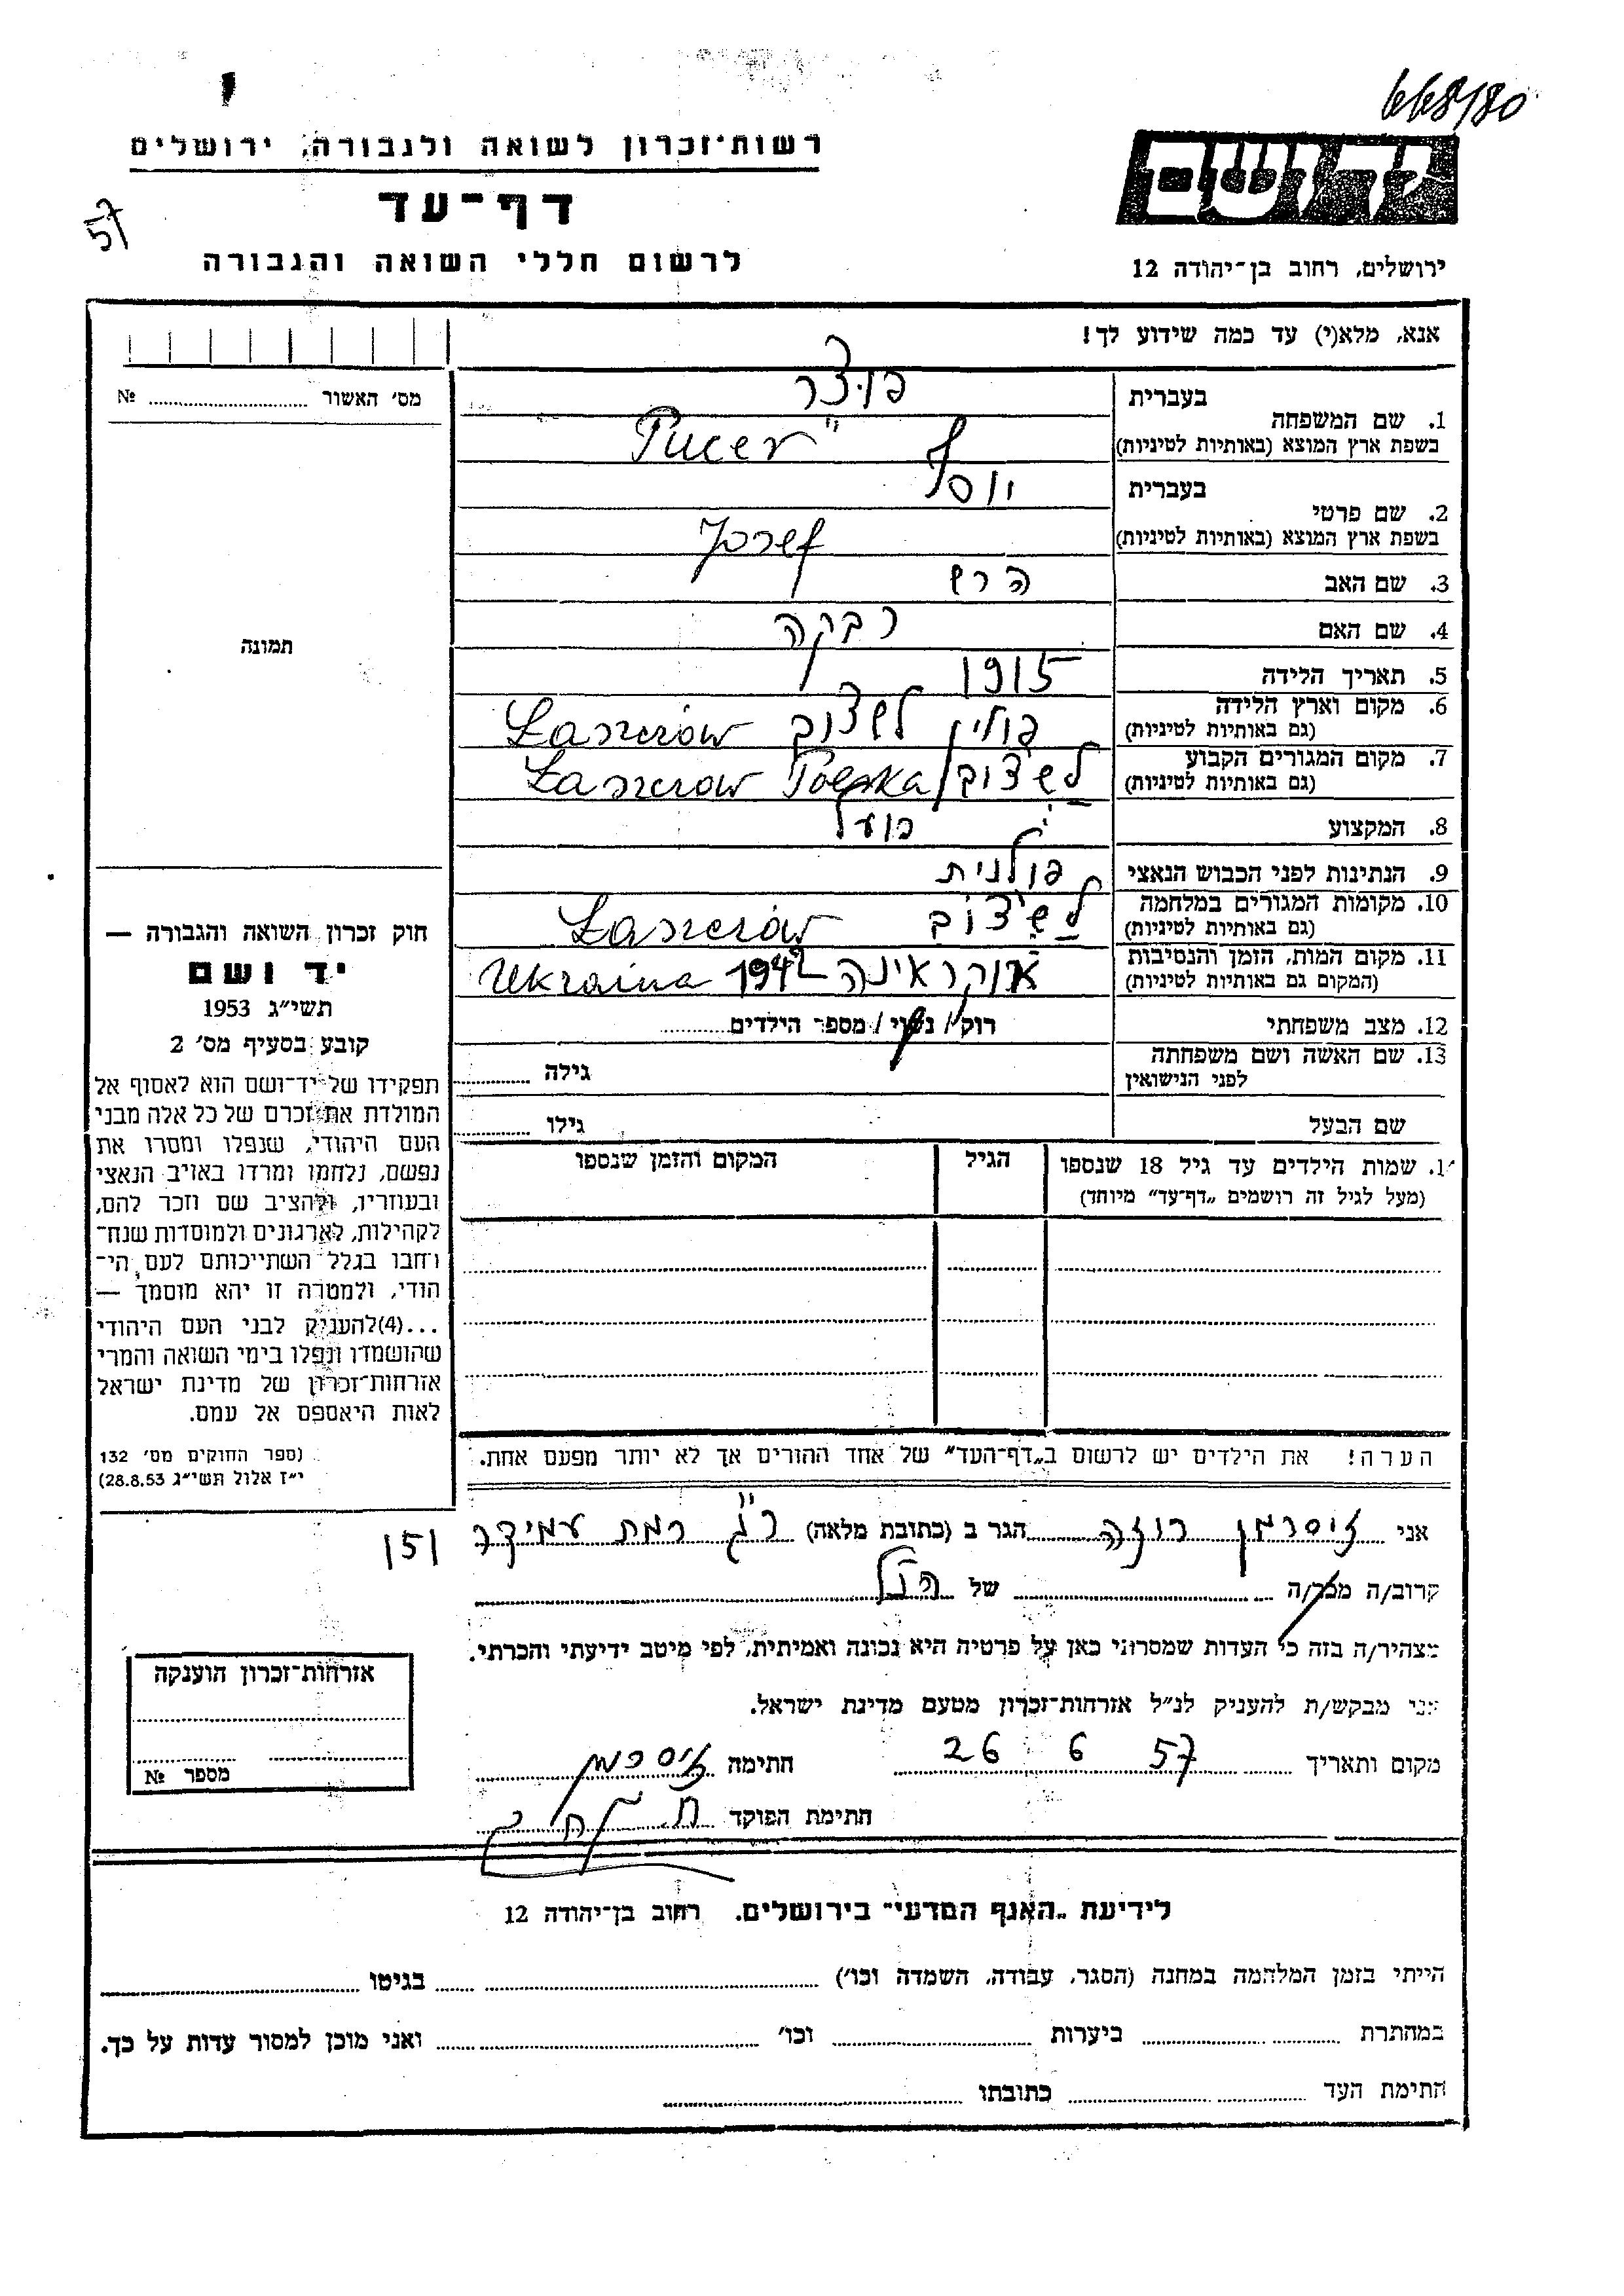 668/80
רשות־זכרון לשואה ולגבורה, ירושלים
יד ושם
דף־עד
57
לרשום חללי השואה והגבורה
ירושלים, רחוב בן־יהודה 12
אנא, מלא(י) עד כמה שידוע לך!
מס׳ האשור ........ №
תמונה
1. שם המשפחה
בעברית פוצר
בשפת ארץ המוצא (באותיות לטיניות) Pucer
2. שם פרטי
בעברית יוסף
בשפת ארץ המוצא (באותיות לטיניות) Josef
3. שם האב הרש
4. שם האם רבקה
5. תאריך הלידה 1915
6. מקום וארץ הלידה פולין לשצוב Łaszczów
(גם באותיות לטיניות)
7. מקום המגורים הקבוע לשצוב / Łaszczow Polska
(גם באותיות לטיניות)
8. המקצוע פועל
9. הנתינות לפני הכבוש הנאצי פולנית
10. מקומות המגורים במלחמה לשצוב Łaszczów
(גם באותיות לטיניות)
11. מקום המות, הזמן והנסיבות אוקראינה 1942 Ukraina
(המקום גם באותיות לטיניות)
12. מצב משפחתי רוק / נשוי / מספר הילדים ........
13. שם האשה ושם משפחתה
לפני הנישואין
גילה ........
שם הבעל גילו ........
1. שמות הילדים עד גיל 18 שנספו
(מעל לגיל זה רושמים „דף־עד” מיוחד)
הגיל
המקום והזמן שנספו
הערה! את הילדים יש לרשום ב„דף־העד” של אחד ההורים אך לא יותר מפעם אחת.
חוק זכרון השואה והגבורה —
יד ושם
תשי״ג 1953
קובע בסעיף מס׳ 2
תפקידו של יד־ושם הוא לאסוף אל
המולדת את זכרם של כל אלה מבני
העם היהודי, שנפלו ומסרו את
נפשם, נלחמו ומרדו באויב הנאצי
ובעוזריו, ולהציב שם וזכר להם,
לקהילות, לארגונים ולמוסדות שנח־
רחבו בגלל השתייכותם לעם הי־
הודי, ולמטרה זו יהא מוסמך —
...(4) להעניק לבני העם היהודי
שהושמדו ונפלו בימי השואה והמרי
אזרחות־זכרון של מדינת ישראל
לאות היאספם אל עמם.
(ספר החוקים מס׳ 132
י״ז אלול תשי״ג 28.8.53)
אני זוסרמן רוזה הגר ב (כתובת מלאה) ר״ג רמת עמידר 151
קרוב/ה מכר/ה ........ של הנ״ל
מצהיר/ה בזה כי העדות שמסרתי כאן על פרטיה היא נכונה ואמיתית, לפי מיטב ידיעתי והכרתי.
אני מבקש/ת להעניק לנ״ל אזרחות־זכרון מטעם מדינת ישראל.
מקום ותאריך 26 6 57 חתימה זוסרמן
חתימת הפוקד
אזרחות־זכרון הוענקה
מספר №
לידיעת „האגף המדעי” בירושלים. רחוב בן־יהודה 12
הייתי בזמן המלחמה במחנה (הסגר, עבודה, השמדה וכו׳) ........ בגיטו ........
במחתרת ........ ביערות ........ וכו׳ ........ ואני מוכן למסור עדות על כך.
חתימת העד ........ כתובתו ........